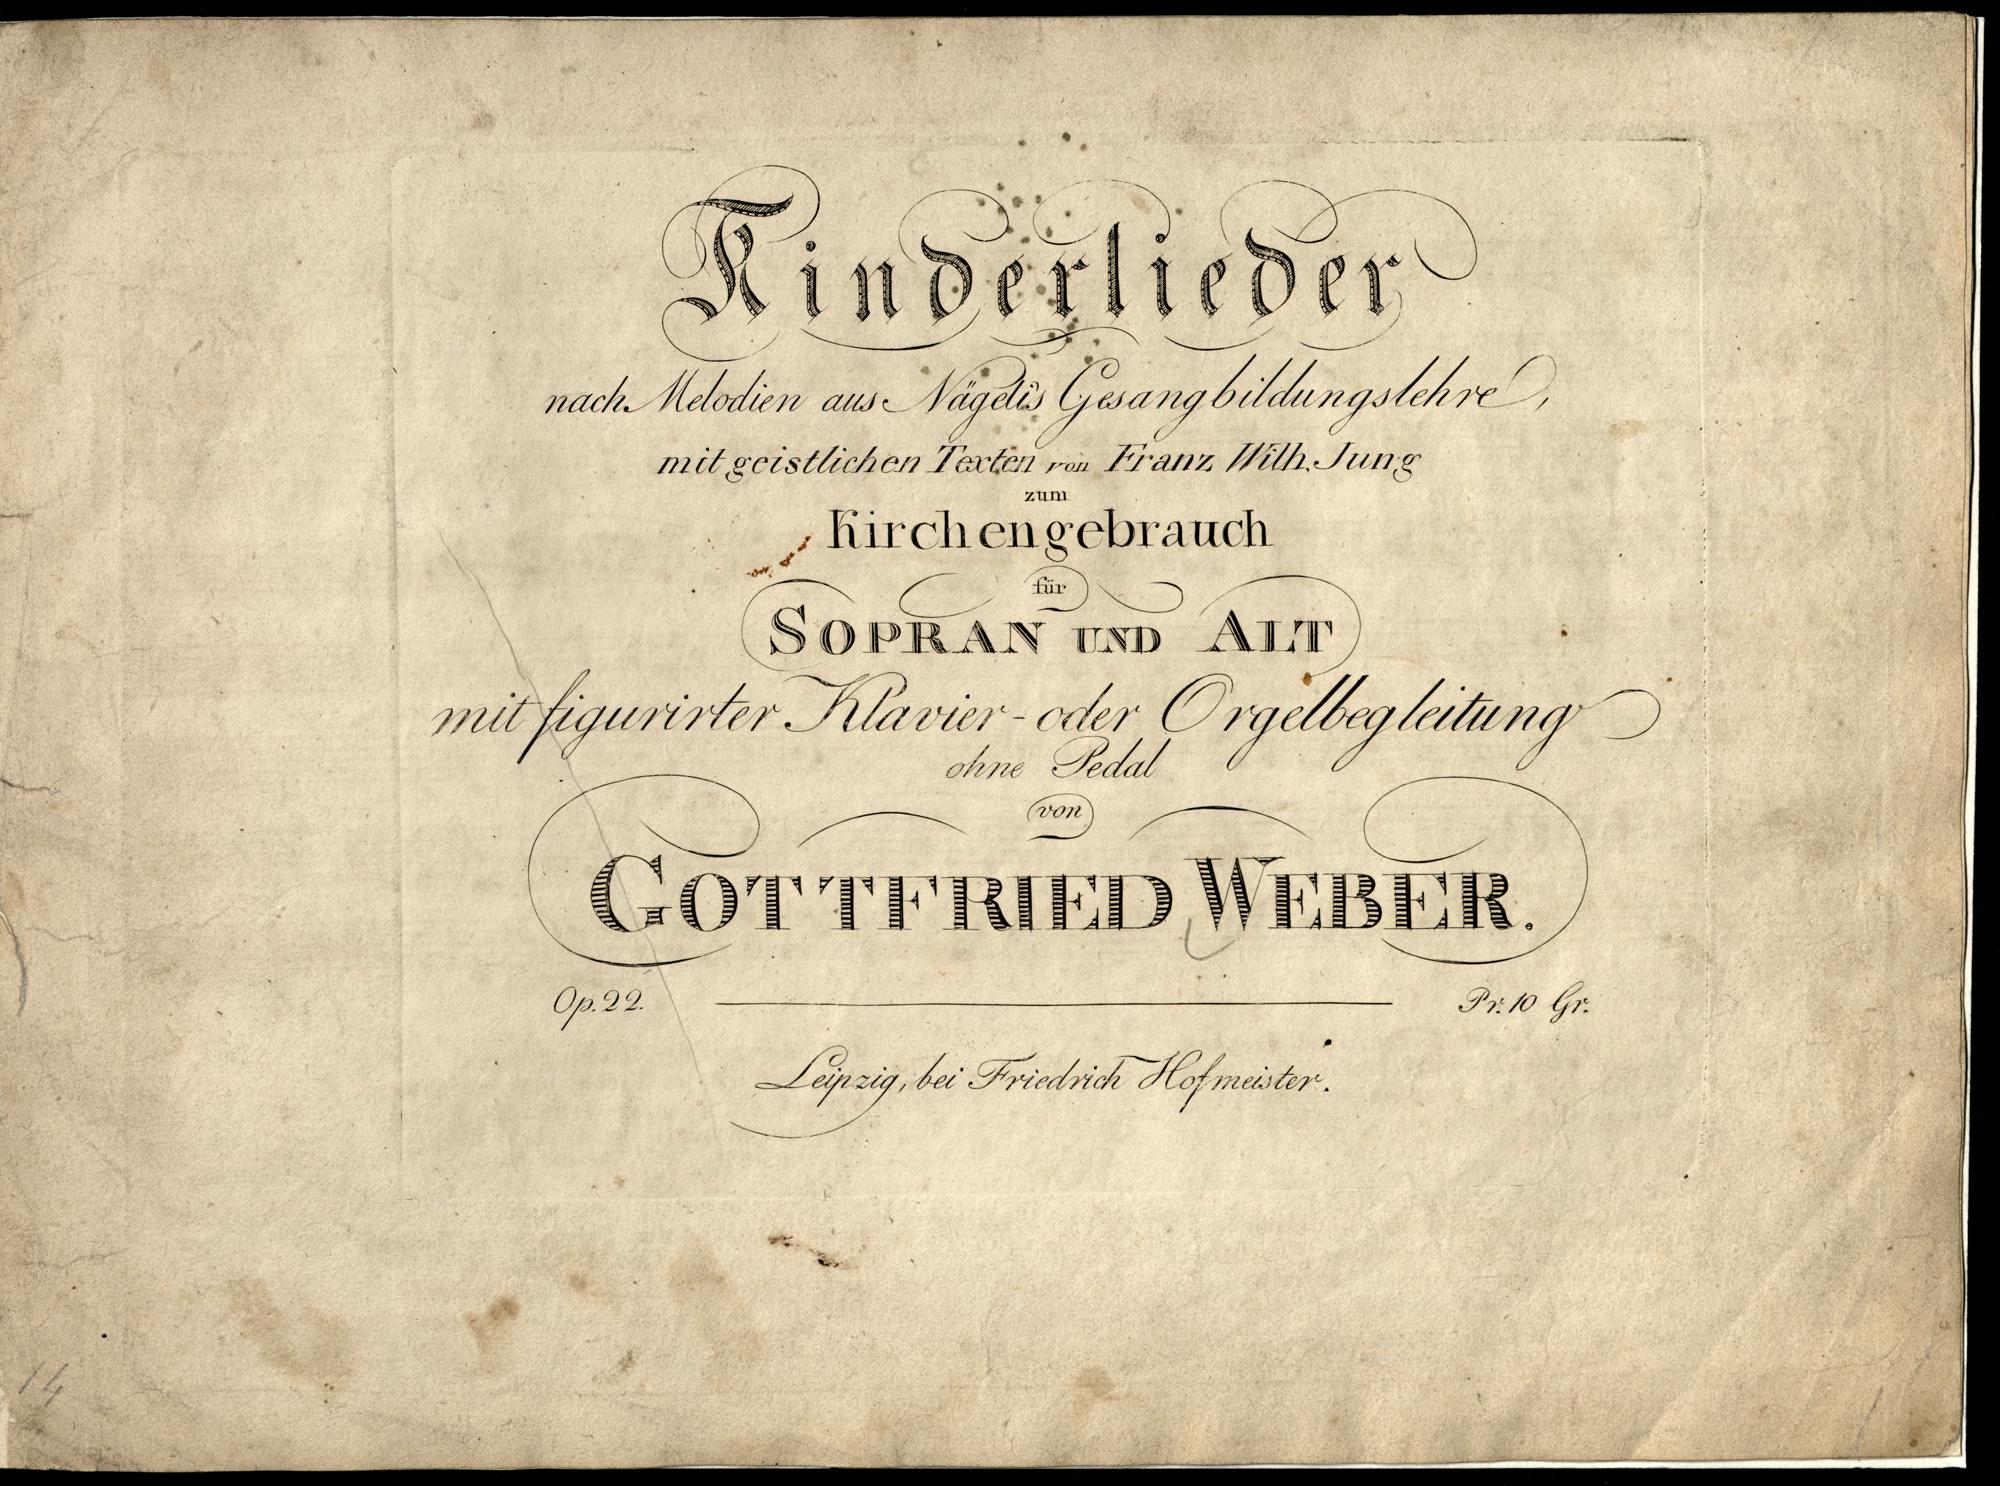 Kinderlieder
nach Melodien aus Nägeli's Gesangbildungslehre,
mit geistlichen Texten von Franz Wilh. Jung
zum
Kirchengebrauch
für
SOPRAN UND ALT
mit figurirter Klavier- oder Orgelbegleitung
ohne Pedal
von
GOTTFRIED WEBER.
Op. 22. Pr. 10 Gr.
Leipzig, bei Friedrich Hofmeister.
14